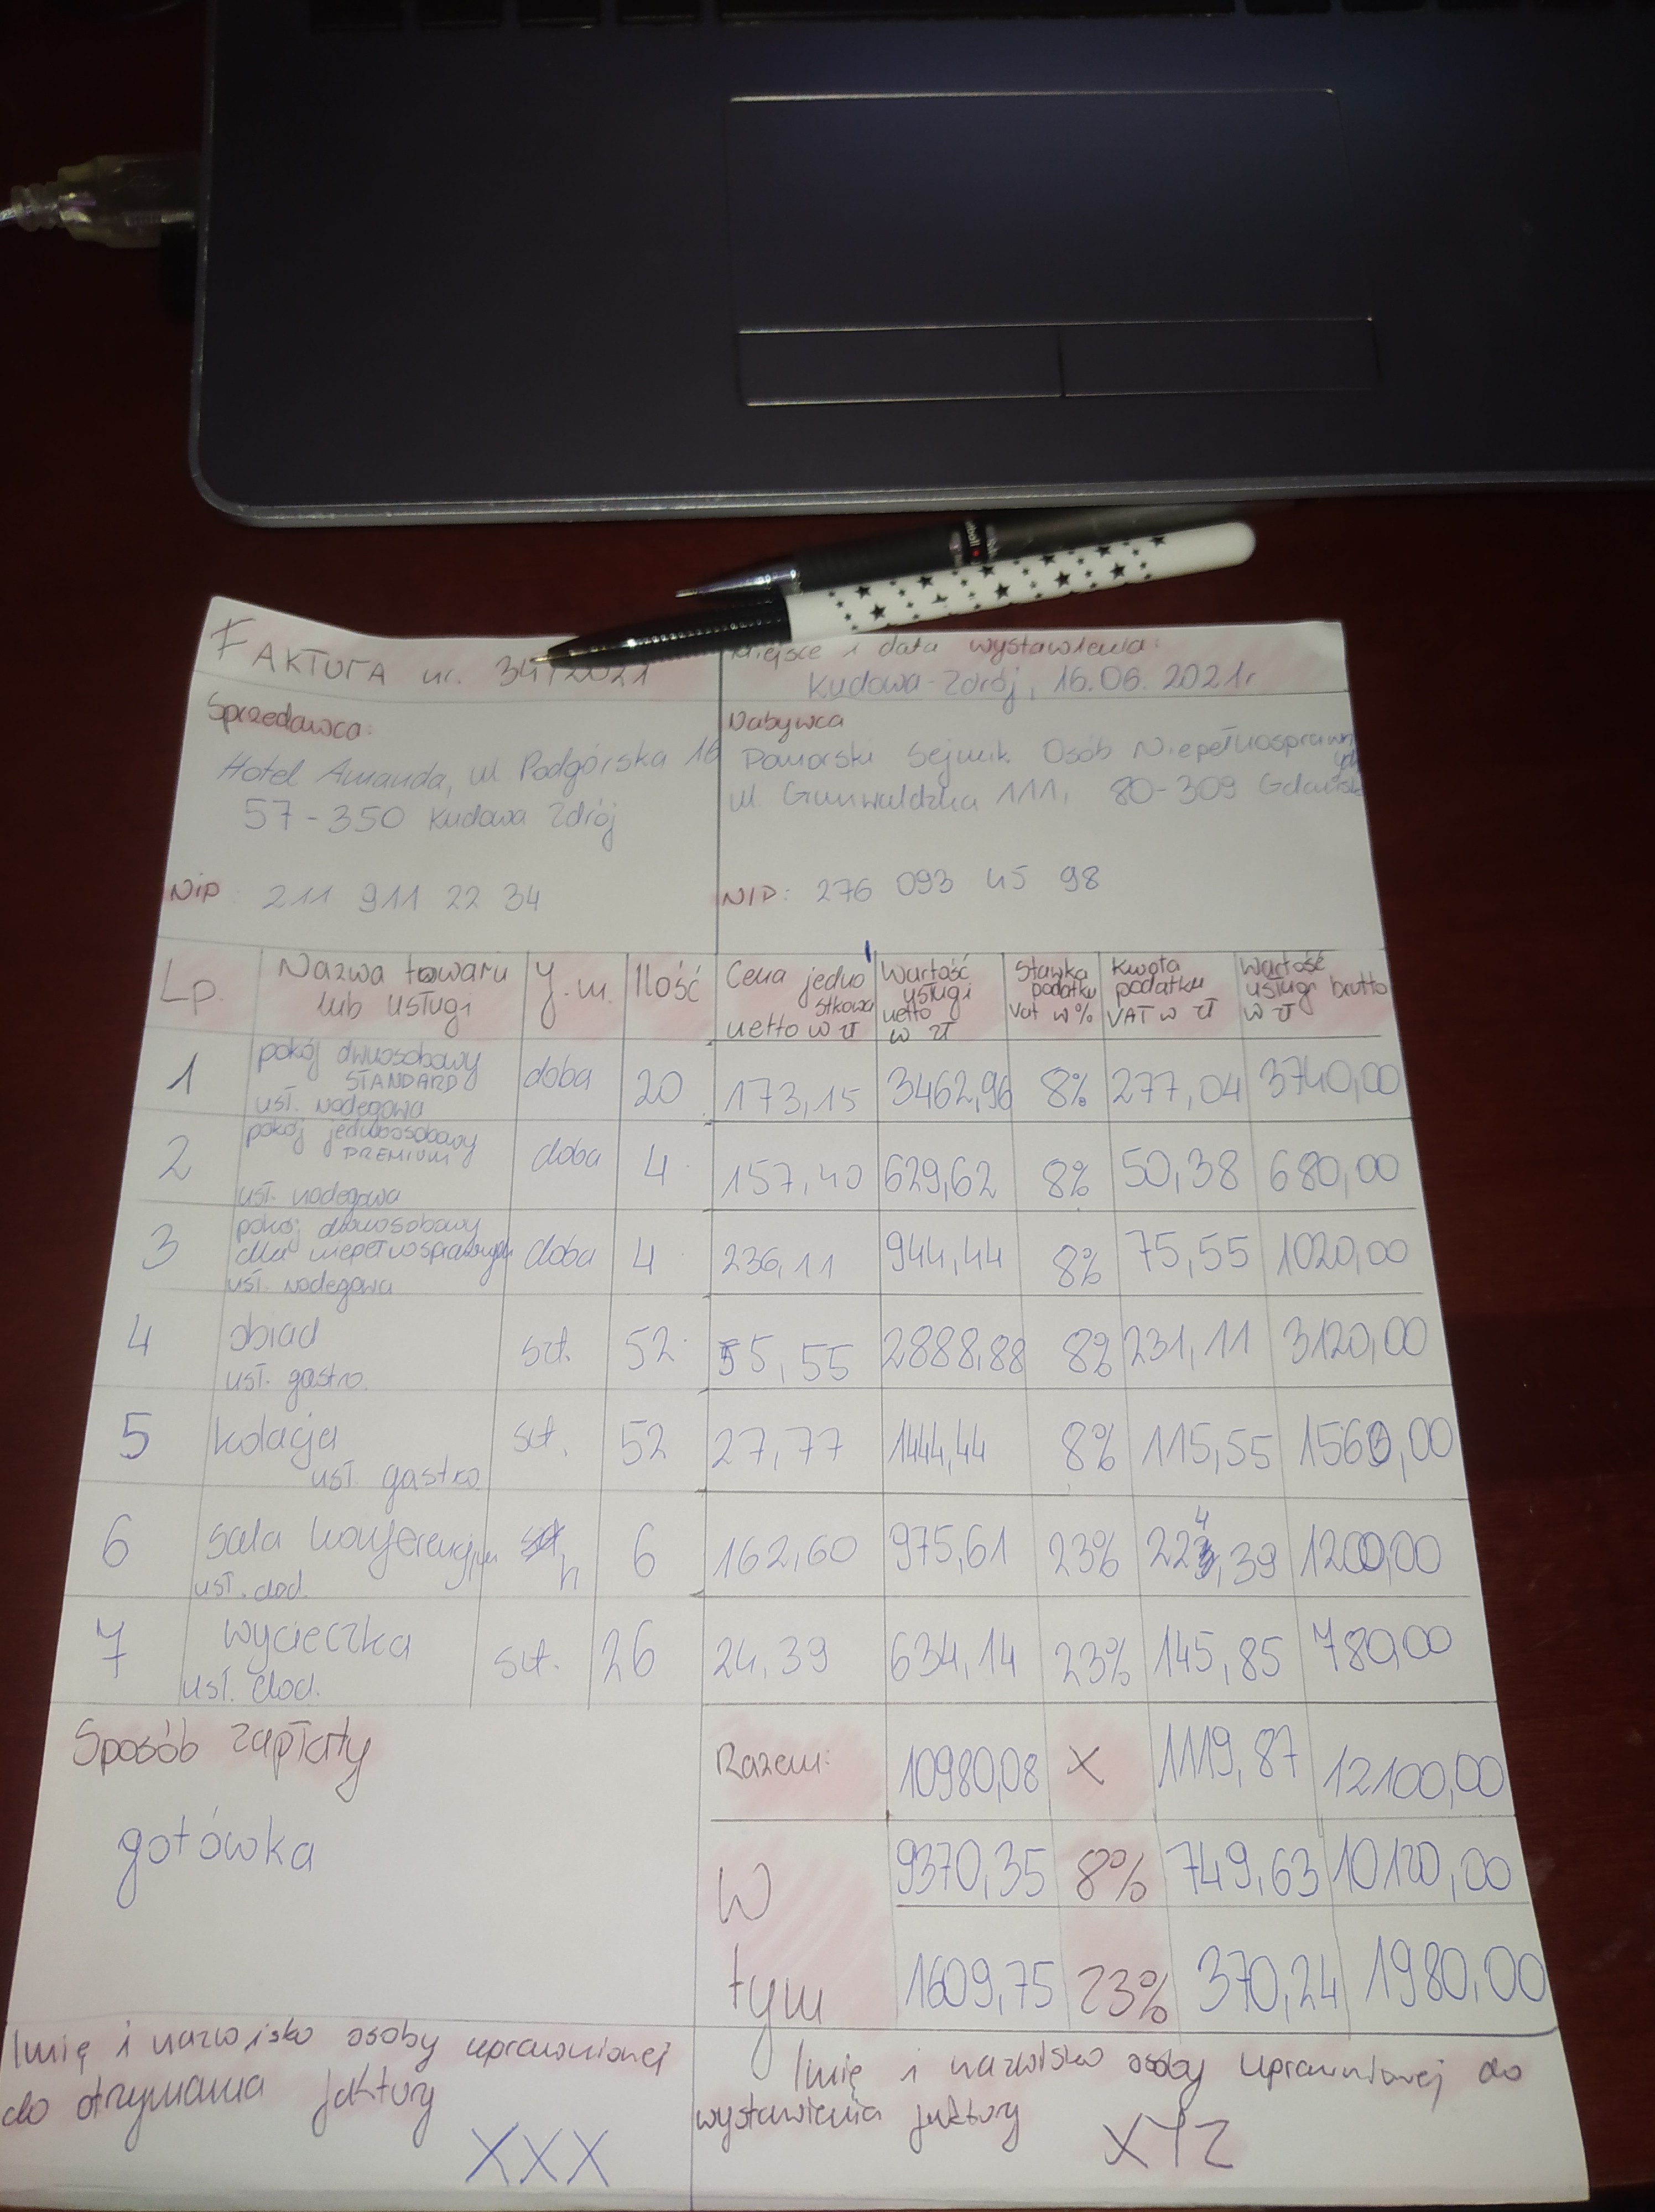 FAKTURA nr. 34/2021
Miejsce i data wystawienia:
Kudowa-Zdrój, 16.06.2021r
Sprzedawca:
Hotel Amanda, ul Podgórska 16
57-350 Kudowa Zdrój
NIP: 211 911 22 34
Nabywca
Pomorski Sejmik Osób Niepełnosprawnych
ul Grunwaldzka 111, 80-309 Gdańsk
NIP: 276 093 45 98
Lp. Nazwa towaru lub usługi J.m. Ilość Cena jednostkowa netto w zł Wartość usługi netto w zł Stawka podatku Vat w % Kwota podatku VAT w zł Wartość usługi brutto w zł
1 pokój dwuosobowy STANDARD usł. nodegowa doba 20 173,15 3462,96 8% 277,04 3740,00
2 pokój jednoosobowy PREMIUM usł. nodegowa doba 4 157,40 629,62 8% 50,38 680,00
3 pokój dwuosobowy dla niepełnosprawnych usł. nodegowa doba 4 236,11 944,44 8% 75,55 1020,00
4 obiad usł. gastro. szt. 52 55,55 2888,88 8% 231,11 3120,00
5 kolacja usł. gastro szt. 52 27,77 1444,44 8% 115,55 1560,00
6 sala konferencyjna usł. dod. h 6 162,60 975,61 23% 224,39 1200,00
7 wycieczka usł. dod. szt. 26 24,39 634,14 23% 145,85 780,00
Sposób zapłaty
gotówka
Razem: 10980,08 X 1119,87 12100,00
W tym 9370,35 8% 749,63 10120,00
1609,75 23% 370,24 1980,00
Imię i nazwisko osoby uprawnionej
do otrzymania faktury
XXX
Imię i nazwisko osoby uprawnionej do
wystawienia faktury
XYZ